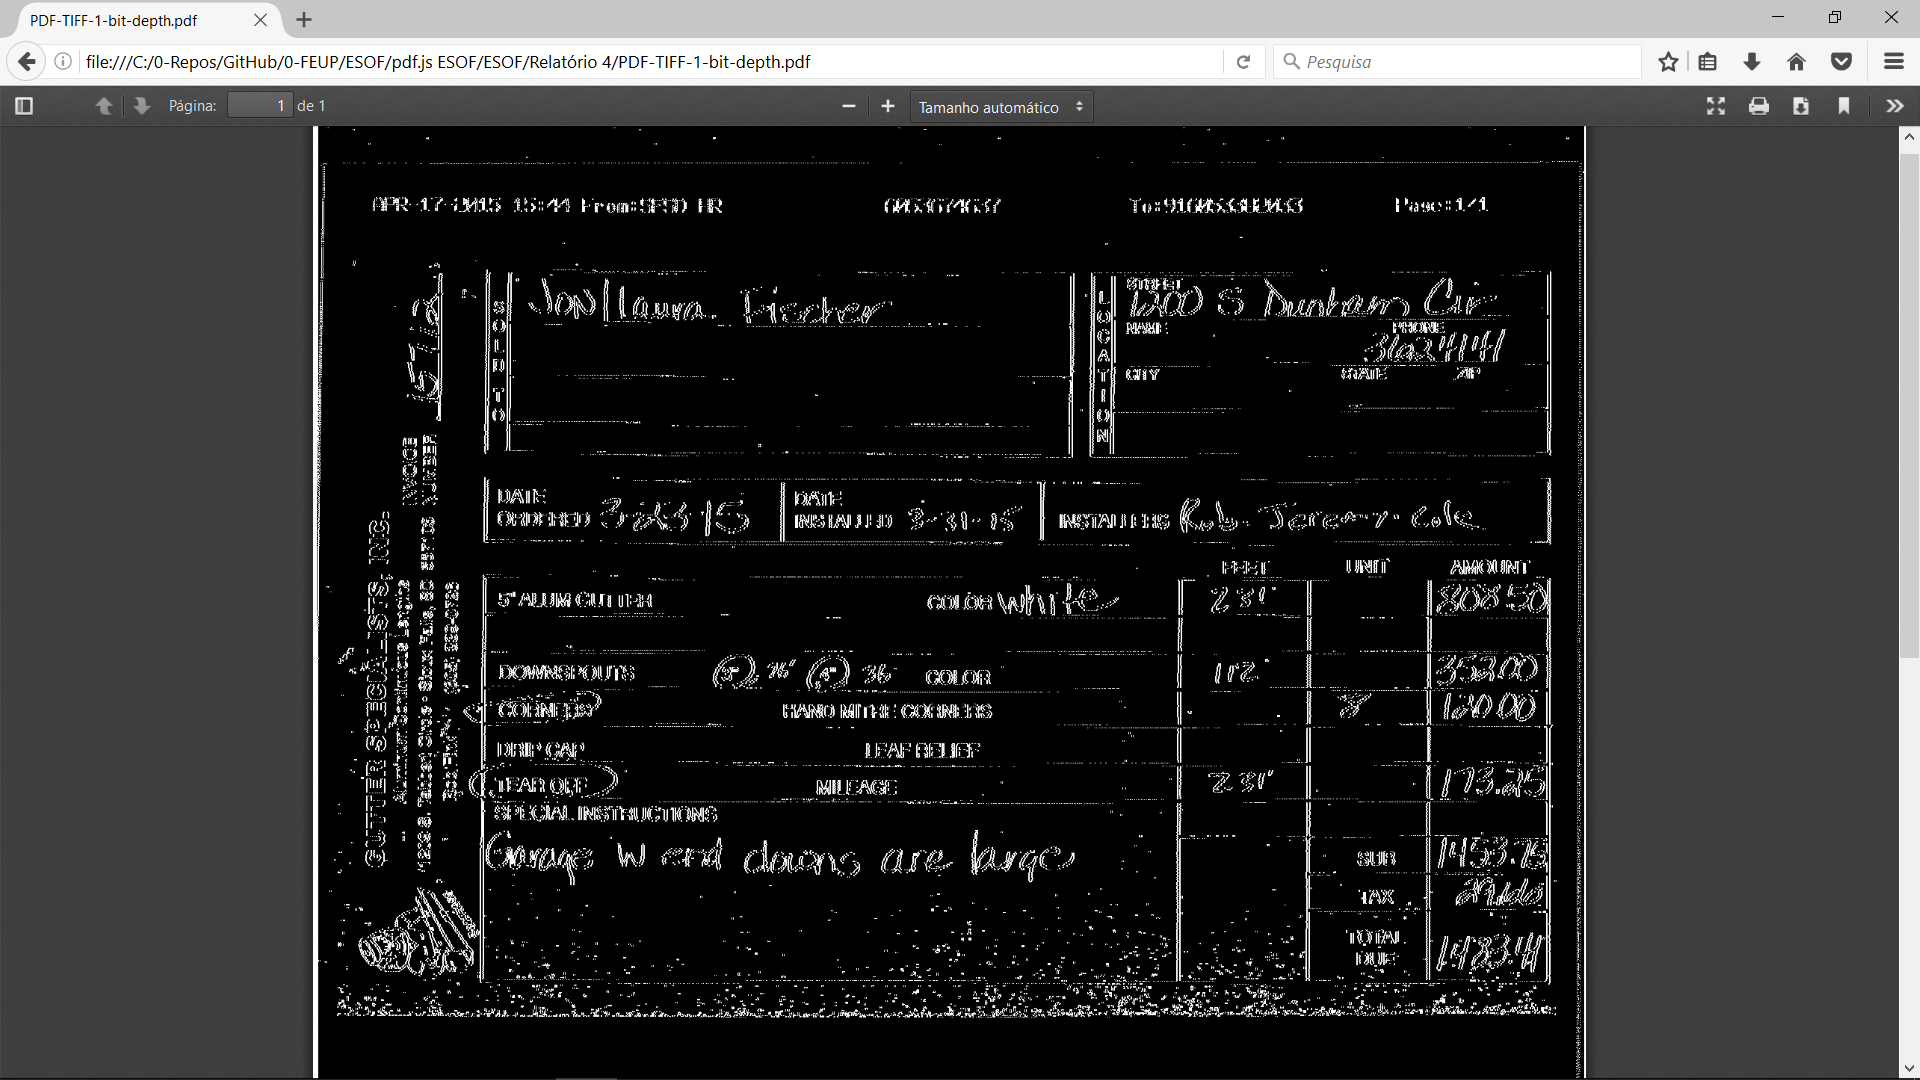 PDF-TIFF-1-bit-depth.pdf
file:///C:/0-Repos/GitHub/0-FEUP/ESOF/pdf.js ESOF/ESOF/Relatório 4/PDF-TIFF-1-bit-depth.pdf
Pesquisa
Página: 1 de 1
Tamanho automático
APR-17-2015 15:44 From:SFSD HR 6053674637 Page:1/1
SOLD TO
Jon/Laura Fischer
LOCATION
STREET
1200 S Dunham Cir
NAME PHONE
3623414
CITY STATE ZIP
INVOICE NUMBER
GUTTER SPECIALISTS, INC.
Aluminum Seamless
DATE ORDERED 3-23-15
DATE INSTALLED 3-31-15
INSTALLERS Rob - Jeremy - Cole
FEET UNIT AMOUNT
5" ALUM GUTTER COLOR White 231' 808.50
DOWNSPOUTS 3" 76' 4" 36' COLOR 112' 353.00
CORNERS HAND MITRE CORNERS 8 120.00
DRIP CAP LEAF RELIEF
TEAR OFF MILEAGE 231' 173.25
SPECIAL INSTRUCTIONS
Garage W end downs are large
SUB 1453.75
TAX
TOTAL DUE 1483.41